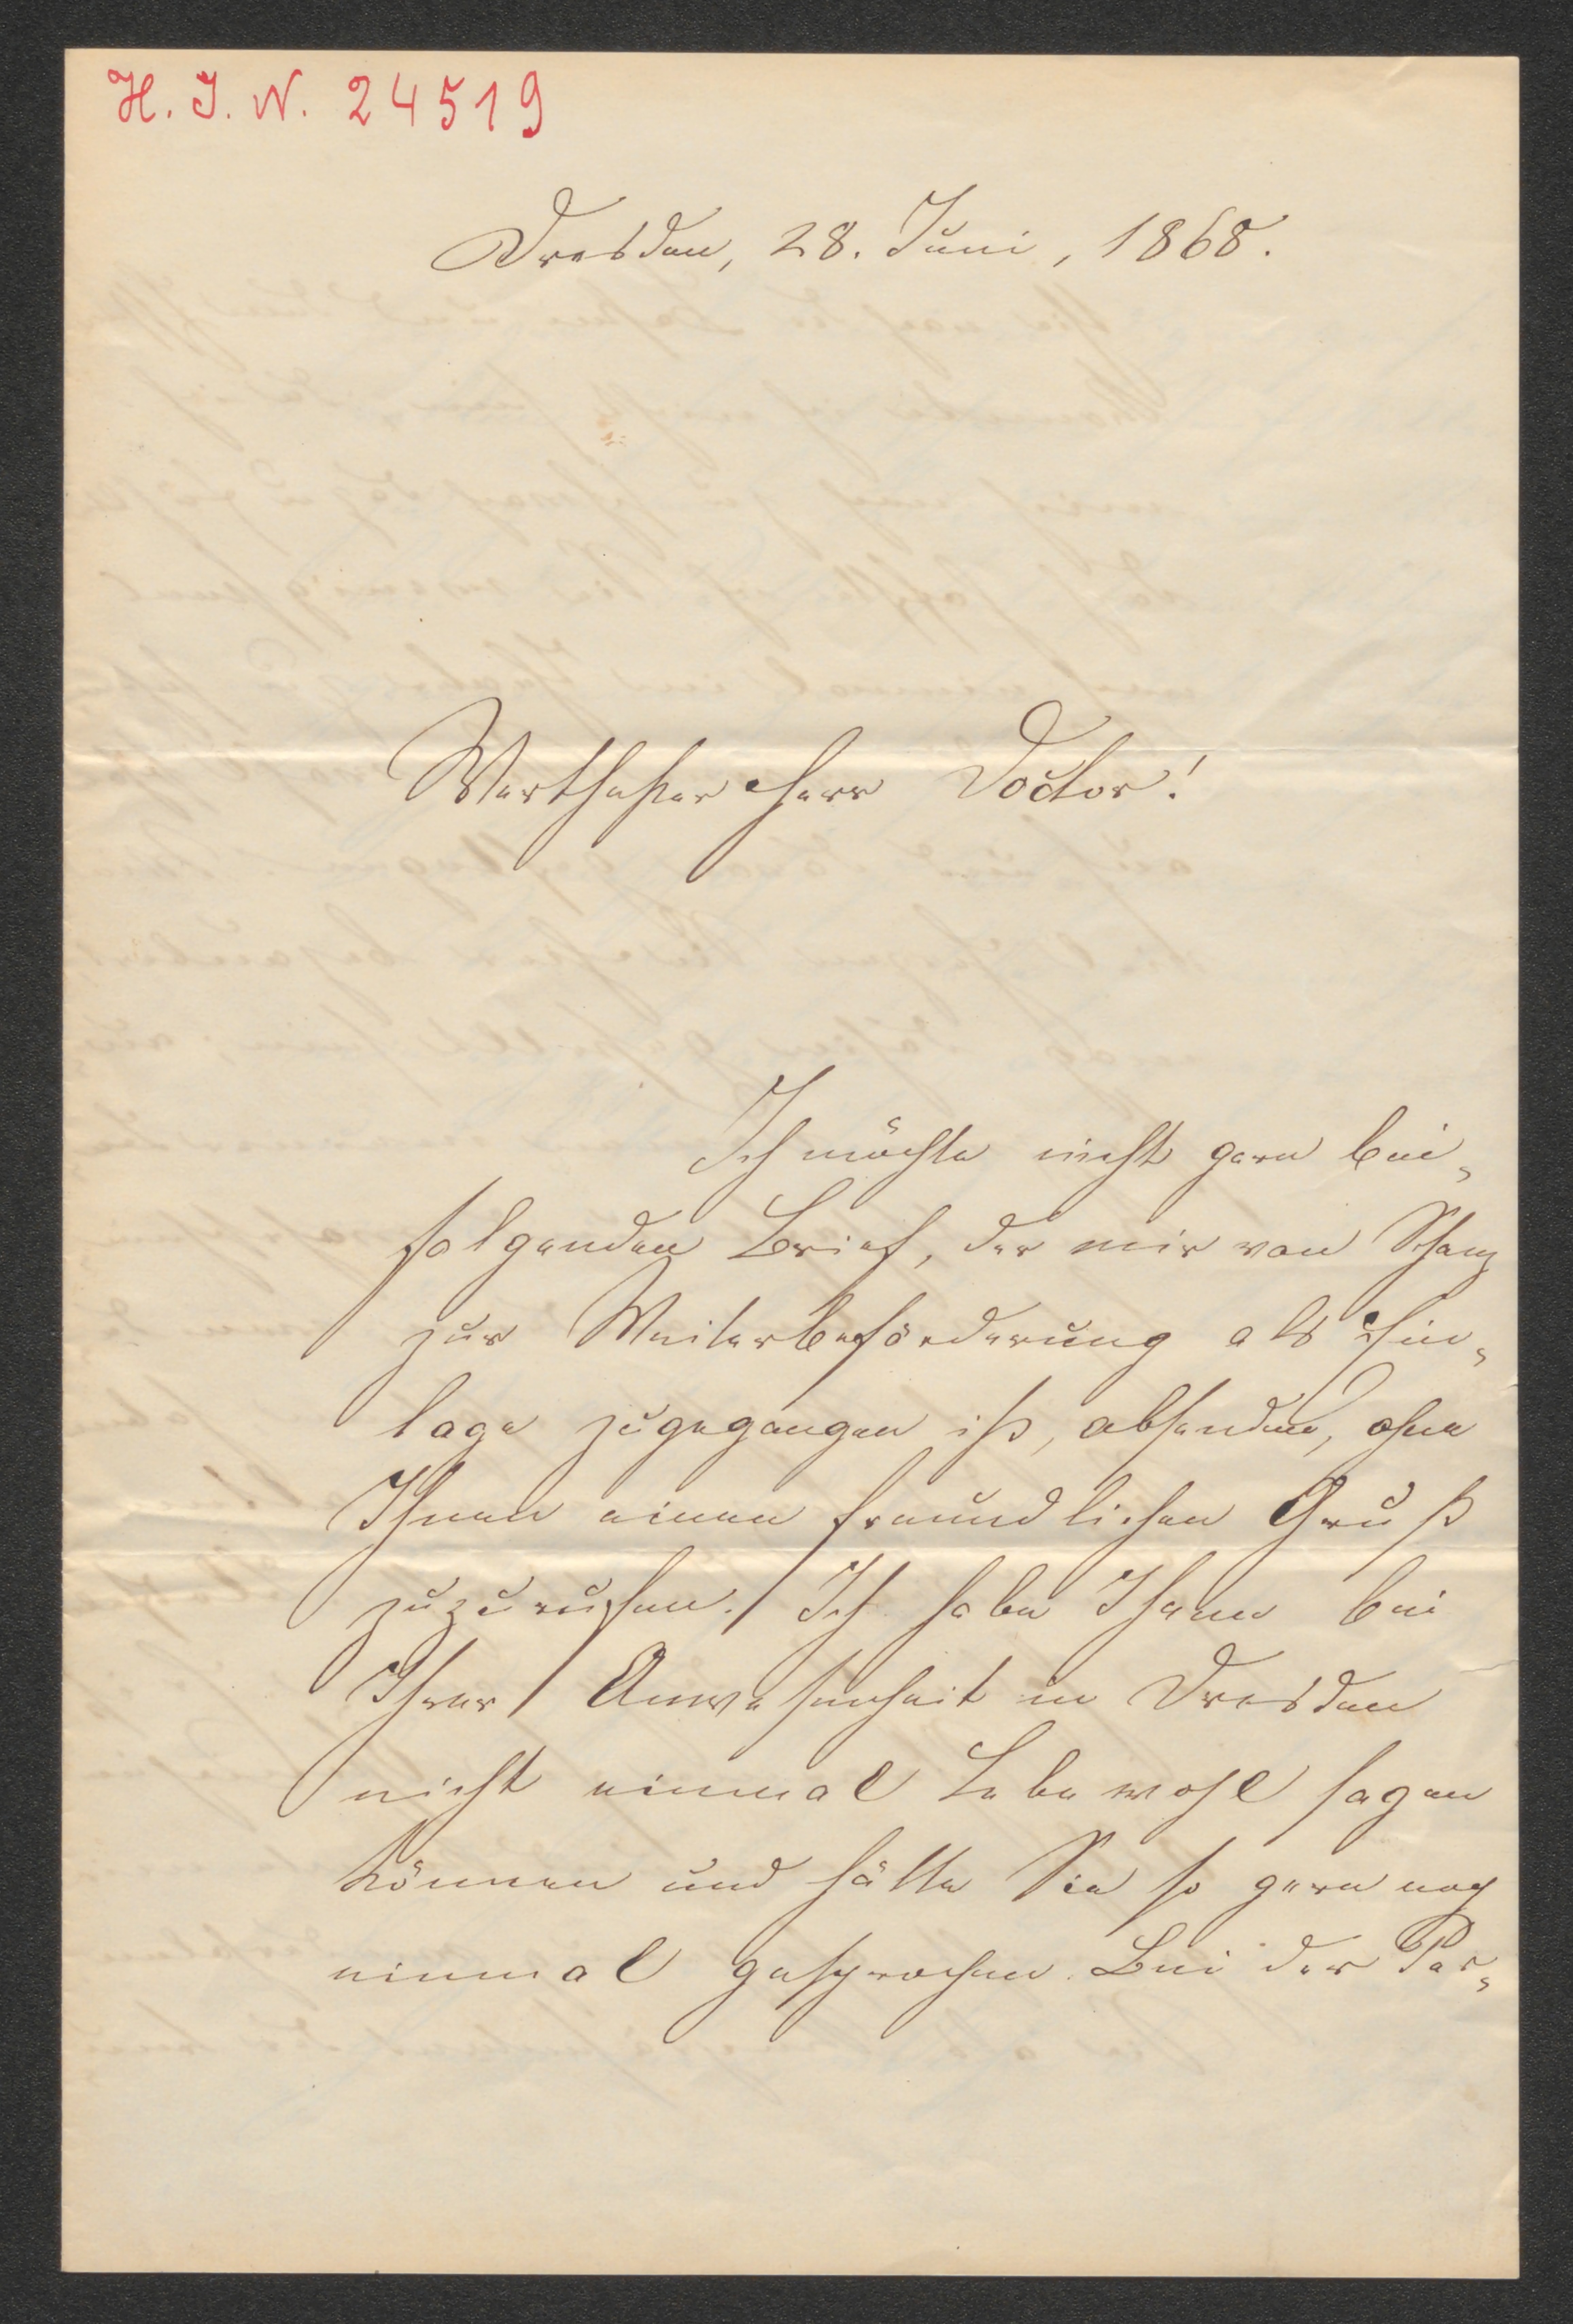 H. I. N. 24519
Dresden, 28. Juni, 1868.
Werthester Herr Doctor!
Ich möchte nicht gern bei-
folgenden Brief, der mir von Schanz
zur Weiterbeförderung als Ein-
lage zugegangen ist, absenden, ohne
Ihnen einen freundlichen Gruß
zuzurufen. Ich habe Ihnen bei
Ihrer Anwesenheit in Dresden
nicht einmal Lebewohl sagen
können und hätte Sie so gern noch
einmal gesprochen. Bei der Par-